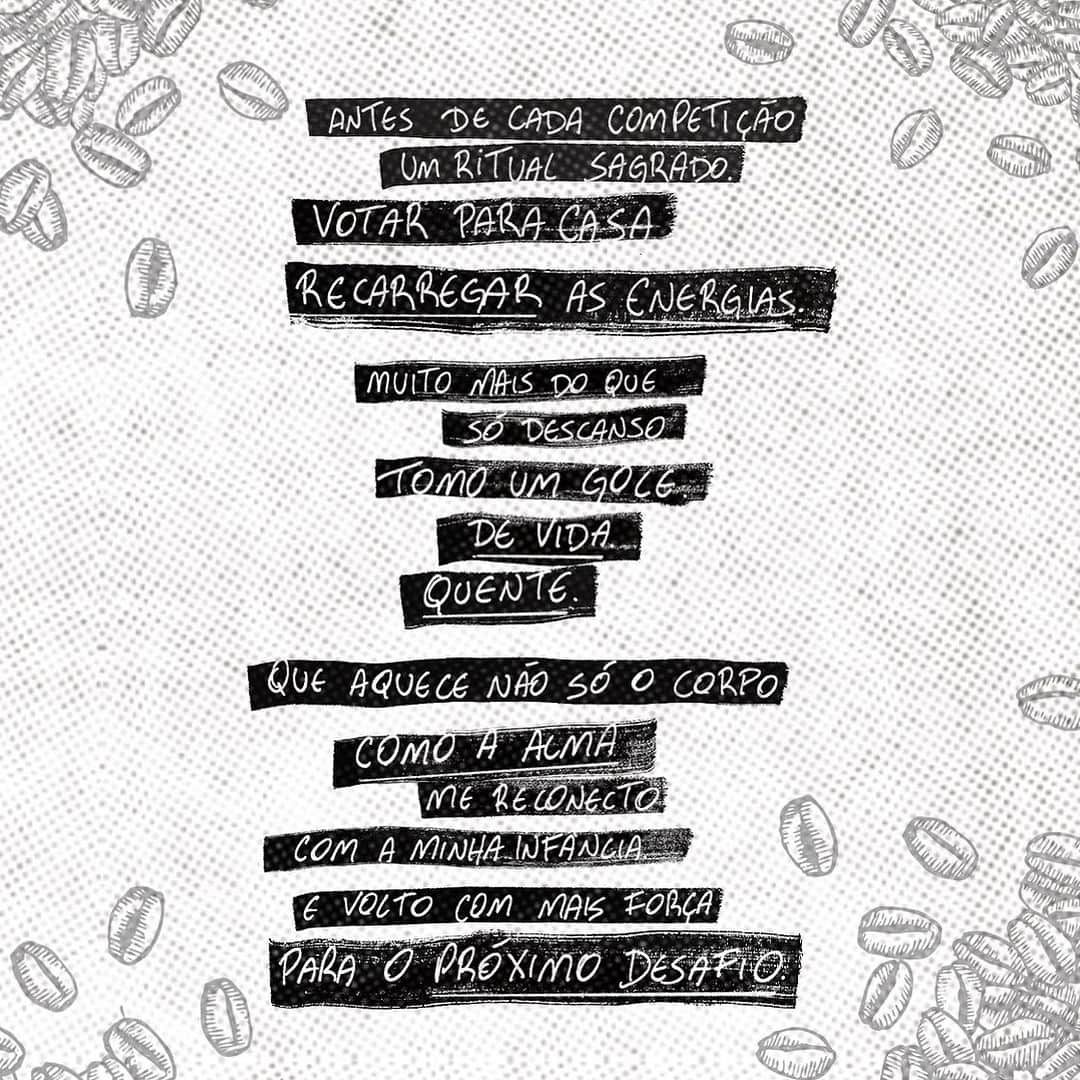 ANTES DE CADA COMPETIÇÃO
UM RITUAL SAGRADO.
VOTAR PARA CASA
RECARREGAR AS ENERGIAS.
MUITO MAIS DO QUE
SÓ DESCANSO
TOMO UM GOLE
DE VIDA
QUENTE.
QUE AQUECE NÃO SÓ O CORPO
COMO A ALMA
ME RECONECTO
COM A MINHA INFÂNCIA
E VOLTO COM MAIS FORÇA
PARA O PRÓXIMO DESAFIO.